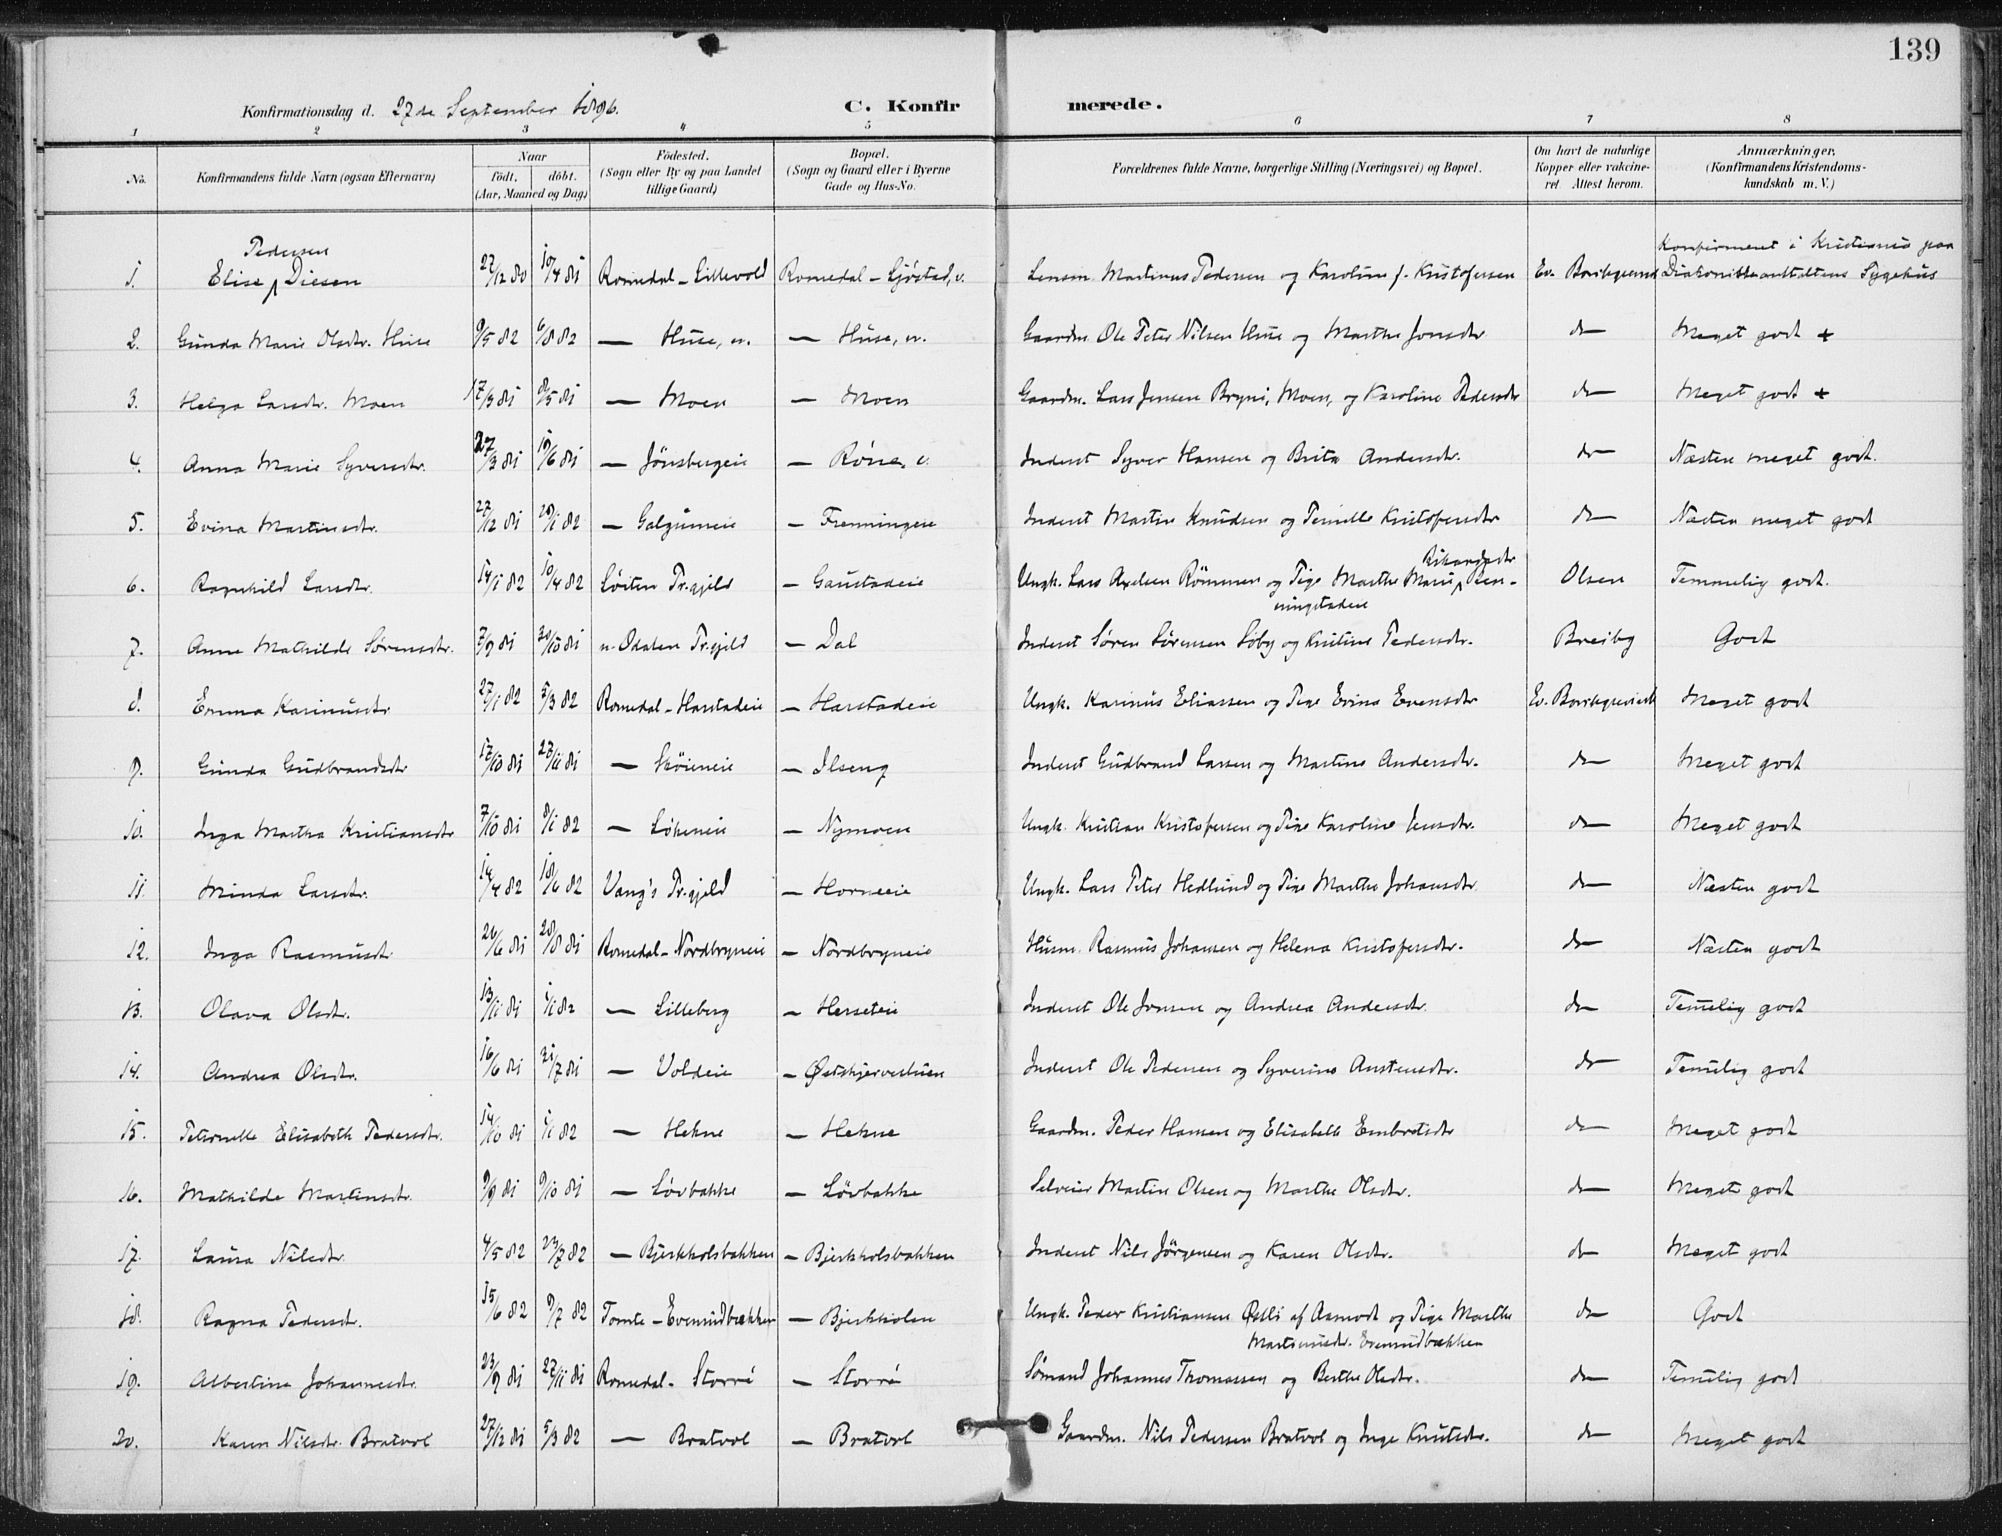 139
Konfirmationsdag d. 27de September 1896. C. Konfirmerede.
1 2 3 4 5 6 7 8
No. Konfirmandens fulde Navn (ogsaa Efternavn) Naar født, døbt. (Aar, Maaned og Dag) Fødested. (Sogn eller By og paa Landet tillige Gaard) Bopæl. (Sogn og Gaard eller i Byerne Gade og Hus-No. Forældrenes fulde Navne, borgerlige Stilling (Næringsvei) og Bopæl. Om havt de naturlige Kopper eller vakcineret. Attest herom. Anmærkninger, (Konfirmandens Kristendomskundskab m. V.)
1. Elise Pedersen Diesen 27/12 80 10/4 81 Romedal - Lillevold Romedal - Sjøstad, v. Lensm. Martinus Pedersen og Karoline f. Kristofersen Ev. Konfirmeret i Kristiania paa Diakonisseanstaltens Sygehus
2. Gunda Marie Olsdtr. Huse 9/5 82 6/8 82 — Huse, n. — Huse, n. Gaardm. Ole Peter Nilsen Huse og Marthe Jonsdtr do Meget godt +
3. Helga Larsdtr. Moen 17/3 81 8/5 81 — Moen — Moen Gaardm. Lars Jensen Bryni, Moen, og Karoline Pedersdtr do Meget godt +
4. Anna Marie Syversdtr. 27/3 81 19/6 81 — Jønsbergeie — Røne, v. Inderst Syver Hansen og Brita Andersdtr. do Næsten meget godt.
5. Evina Martinsdtr. 27/12 81 29/1 82 — Galgumeie — Frenningeie Inderst Martin Knudsen og Pernille Kristofersdtr do Næsten meget godt
6. Ragnhild Larsdtr. 14/1 82 10/4 82 Løiten Pr.gjeld — Gaustadeie Ungk. Lars Axelsen Rømmen og Pige Marthe Marie Rikardsdtr Olsen Temmelig godt.
7. Anne Mathilde Sørensdtr. 7/9 81 30/10 81 n. Odalen Pr.gjeld — Dal Inderst Søren Sørensen Søby og Kristine Pedersdtr. Breiby Godt
8. Emma Karinusdtr. 27/1 82 5/3 82 Romedal - Harstadeie — Harstadeie Ungk. Karinus Eliassen og Pige Evina Evensdtr Ev. Meget godt
9. Gunda Gudbrandsdtr 17/10 81 27/11 81 — Skøieneie — Ilseng Inderst Gudbrand Larsen og Martine Andersdtr. do Meget godt
10. Inga Martha Kristiansdtr 7/10 81 8/1 82 — Løkeneie — Nymoen Ungk. Kristian Kristofersen og Pige Karoline Jensdtr. do Meget godt
11. Minda Larsdtr. 14/4 82 18/6 82 Vang's Pr.gjeld — Horneeie Ungk. Lars Peter Hedlund og Pige Marthe Johansdtr. do Næsten godt
12. Inga Rasmusdtr 26/6 81 28/8 81 Romedal - Nordbryneie — Nordbryneie Husm. Rasmus Johansen og Helena Kristofersdtr. do Næsten godt
13. Olava Olsdtr. 13/11 81 1/1 82 — Lilleberg — Herseteie Inderst Ole Jonsen og Andrea Andersdtr. do Temelig godt
14. Andrea Olsdtr. 16/6 81 31/7 81 — Voldeie — Østskjervestuen Inderst Ole Pedersen og Syverine Austensdtr. do Temelig godt
15. Petronelle Elisabeth Pedersdtr. 14/10 81 1/1 82 — Hekne — Hekne Gaardm. Peder Hansen og Elisabeth Embretsdtr do Meget godt
16. Mathilde Martinsdtr. 9/9 81 9/10 81 — Løvbakke — Løvbakke Selveier Martin Olsen og Marthe Olsdtr. do Meget godt
17. Laura Nilsdtr. 4/5 82 23/7 82 — Bjerkholsbakken — Bjerkholsbakken Inderst Nils Jørgensen og Karen Olsdtr. do Meget godt
18. Ragna Pedersdtr. 15/6 82 9/7 82 Tomte - Evensrudbækken — Bjerkholen Ungk. Peder Kristiansen Østli af Aamodt og Pige Marthe Martinusdtr. Evensrudbækken do Godt
19. Albertine Johannesdtr. 23/9 81 27/11 81 Romedal - Storrø — Storrø Sømand Johannes Thomassen og Berthe Olsdtr. do Temelig godt
20. Karen Nilsdtr. Bratvol 27/12 81 5/3 82 — Bratvol — Bratvol Gaardm. Nils Pedersen Bratvol og Inge Knutsdtr. do Meget godt